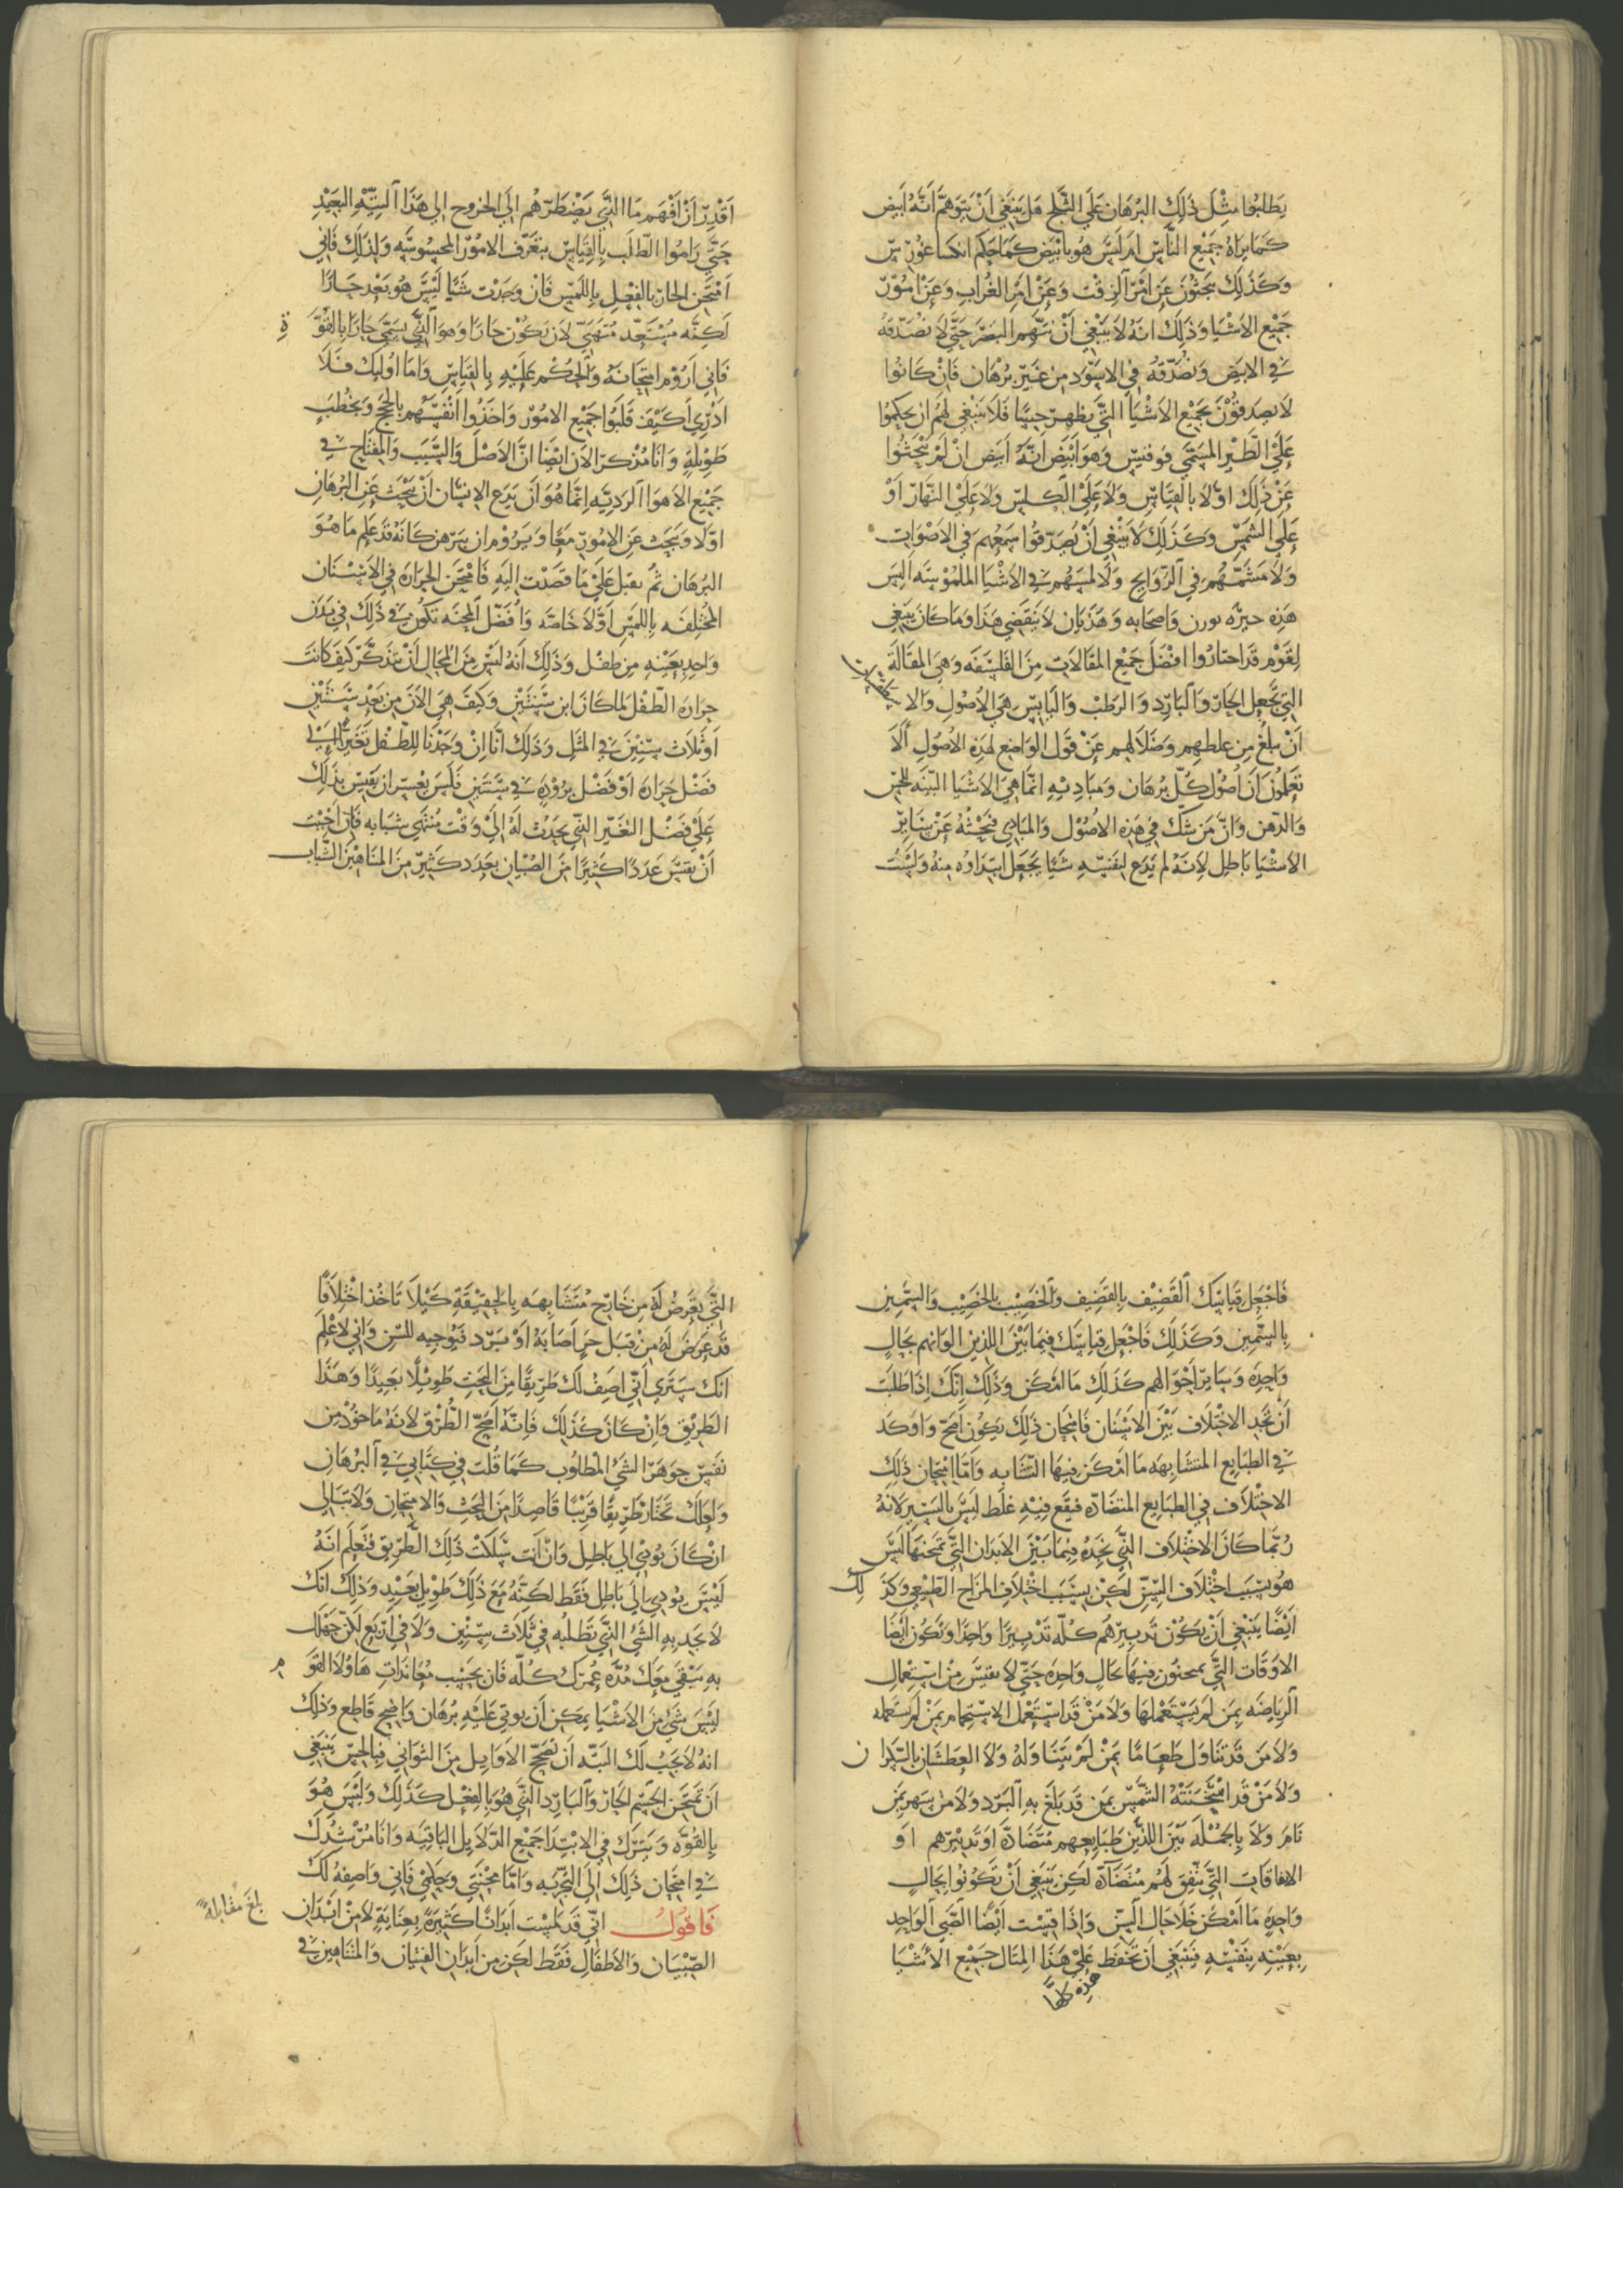 يطلبوا مثل ذلك البرهان علي الثلج هل ينبغي ان يتوهم انه ابيض
كما يراه جميع الناس ام ليس هو بابيض كما حكم انكساغورس
وكذلك يبحثون عن امر الزفت وعن امر الغراب وعن امور
جميع الاشيا وذلك انه لا ينبغي ان يتهم البصر حتي لا نصدقه
في الابيض ونصدقه في الاسود من غير برهان فان كانوا
لا يصدقون بجميع الاشيا التي يظهر حسا فلا ينبغي لهم ان يحكموا
علي الطير المسمي فوفنس وهو ابيض انه ابيض ان لم يبحثوا
عن ذلك اولا بالقياس ولا علي الكلس ولا علي النهار او
علي الشمس وكذلك لا ينبغي ان يصدقوا سمعهم في الاصوات
ولا مشمهم في الروايح ولا لمسهم في الاشيا الملموسه اليس
هذه حيره بورن واصحابه وهذيان لا ينقضي هذا وما كان ينبغي
لقوم قد اختاروا افضل جميع المقالات من الفلسفه وهي المقالة
التي تجعل الحار والبارد والرطب واليابس هي الاصول والا سطقسات
ان بلغ من غلطهم وضلالهم عن قول الواضع لهذه الاصول الا
تعلمون ان اصول كل برهان ومباديه انما هي الاشيا البينه للحس
والذهن وان من شك في هذه الاصول والمبادي فبحثه عن ساير
الاشيا باطل لانه لم يدع لنفسه شيا يجعل ابتداوه منه ولست
اقدر ان افهم ما التي يضطرهم الي الخروج الي هذا التيه البعيد
حتي راموا الطلب بالقياس بتعرف الامور المحسوسه ولذلك فاني
امتحن الحار بالفعل باللمس فان وجدت شيا ليس هو بعد حارا
لكنه مستعد متهيي لان يكون حارا وهو الذي يسمي حارا بالقوة
فاني اروم امتحانه والحكم عليه بالقياس واما اوليك فلا
ادري كيف قلبوا جميع الامور واخذوا انفسهم بالحجج وبخطب
طويلة وانا مذكر الان ايضا ان الاصل والسبب والمفتاح في
جميع الاهوا الرديه انما هو ان يدع الانسان ان يبحث عن البرهان
اولا ويبحث عن الامور معا ويروم ان يبرهن كانه قد علم ما هو
البرهان ثم نقبل علي ما قصدت اليه فامتحن الحراره في الاسنان
المختلفه باللمس اولا خاصه وافضل المحنه تكون في ذلك في بدن
واحد بعينه من طفل وذلك انه ليس من المحال ان نتذكر كيف كانت
حراره الطفل لما كان ابن سنتين وكيف هي الان من بعد سنتين
او ثلاث سنين في المثل وذلك انا ان وجدنا للطفل تغيرا الي
فضل حراره او فضل بروده في سنتين فليس يعسر ان نقيس بذلك
علي فضل التغير التي يحدث له الي وقت منتهي شبابه فان احببت
ان تقيس عددا كثيرا من الصبيان بعدد كثير من المتناهين الشباب
فاجعل قياسك القضيف بالقضيف والخصيب بالخصيب والسمين
بالسمين وكذلك فاجعل قياسك فيما بين اللذين الوانهم بحال
واحده وساير احوالهم كذلك ما امكن وذلك انك اذا طلبت
ان تجد الاختلاف بين الاسنان فامتحان ذلك يكون اصح واوكد
في الطبايع المتشابهه ما امكن فيها التشابه واما امتحان ذلك
الاختلاف في الطبايع المتضاده فيقع فيه غلط ليس باليسير لانه
ربما كان الاختلاف التي نجده فيما بين الابدان التي تمتحنها ليس
هو بسبب اختلاف السن لكن بسبب اختلاف المزاج الطبيعي وكذلك
ايضا ينبغي ان يكون تدبيرهم كله تدبيرا واحدا وتكون ايضا
الاوقات التي يمتحنون فيها بحال واحده حتي لا نقيس من استعمل
الرياضه بمن لم يستعملها ولا من قد استعمل الاستحمام بمن لم يستعمله
ولا من قد تناول طعاما بمن لم يتناوله ولا العطشان بالسكران
ولا من قد امتحنته الشمس بمن قد بلغ به البرد ولا من سهر بمن
نام ولا بالجملة بين اللذين طبايعهم متضاده او تدبيرهم او
الافاقات التي تتفق لهم متضاده لكن ينبغي ان تكونوا بحال
واحده ما امكن خلا حال السن واذا قيست ايضا الصبي الواحد
بعينه بنفسه فينبغي ان تحفظ علي هذا المثال جميع الاشيا
هذه كلها
التي يعرض له من خارج متشابهه بالحقيقه كيلا تاخذ اختلافا
قد عرض له من قبل حر اصابه او برد فتوجبه للسن واني لاعلم
انك ستري اني اصف لك طريقا من البحث طويلا بعيدا وهذا
الطريق وان كان كذلك فانه اصح الطرق لانه ماخوذ من
نفس جوهر الشي المطلوب كما قلت في كتابي في البرهان
ولعلك تختار طريقا قريبا قاصدا من البحث والامتحان ولا تبالي
ان كان يودي الي باطل وان انت سلكت ذلك الطريق فتعلم انه
ليس يودي الي باطل فقط لكنه مع ذلك طويل بعيد وذلك انك
لا تجد به الشي التي تطلبه في ثلاث سنين ولا في اربع لكن جهلك
به يبقي معك مده عمرك كله فان بحسب معاندات هاولا القوم
ليس شي من الاشيا يمكن ان يوتي عليه برهان واضح قاطع وذلك
انه لا يجب لك البته ان تصحح الاوايل من الثواني فبالحس ينبغي
ان تمتحن الجسم الحار والبارد التي هو بالفعل كذلك وليس هو
بالقوه ويترك في الابتدا جميع الدلايل الباقيه وانا مرشدك
في امتحان ذلك الي التجربه واما محنتي وحكمي فاني واصفه لك
فاقول اني قد لمست ابدانا كثيرة بعناية لا من ابدان
الصبيان والاطفال فقط لكن من ابدان الفتيان والمتناهين في
بلغ مقابلة